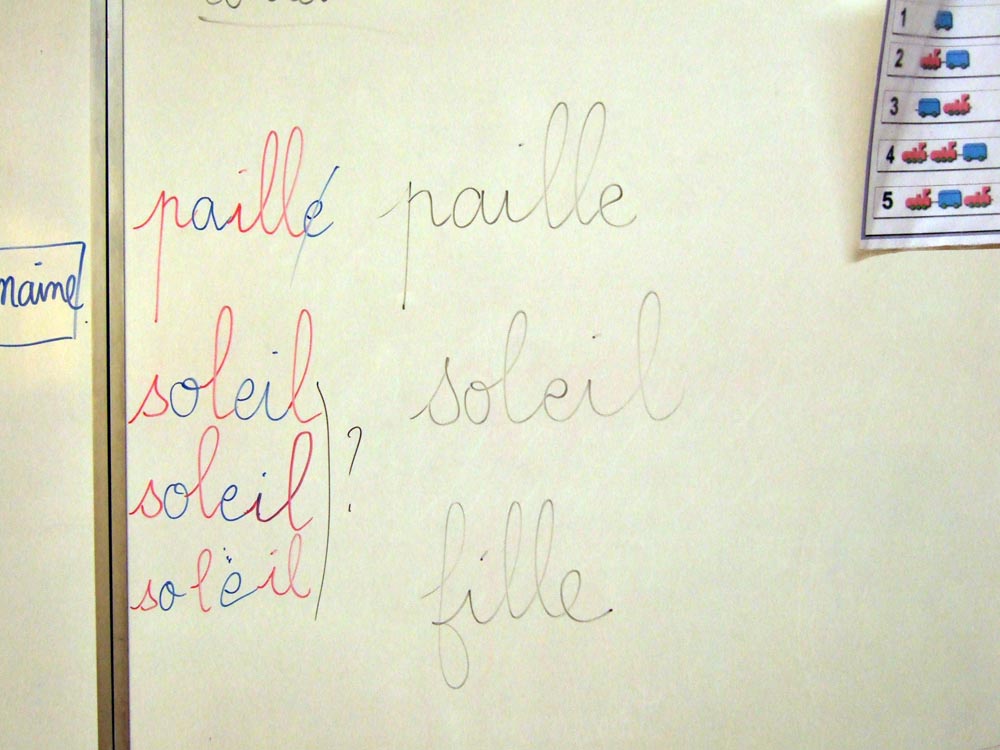 paillé paille
soleil soleil
soleil ?
solëil
fille
maine
1
2
3
4
5